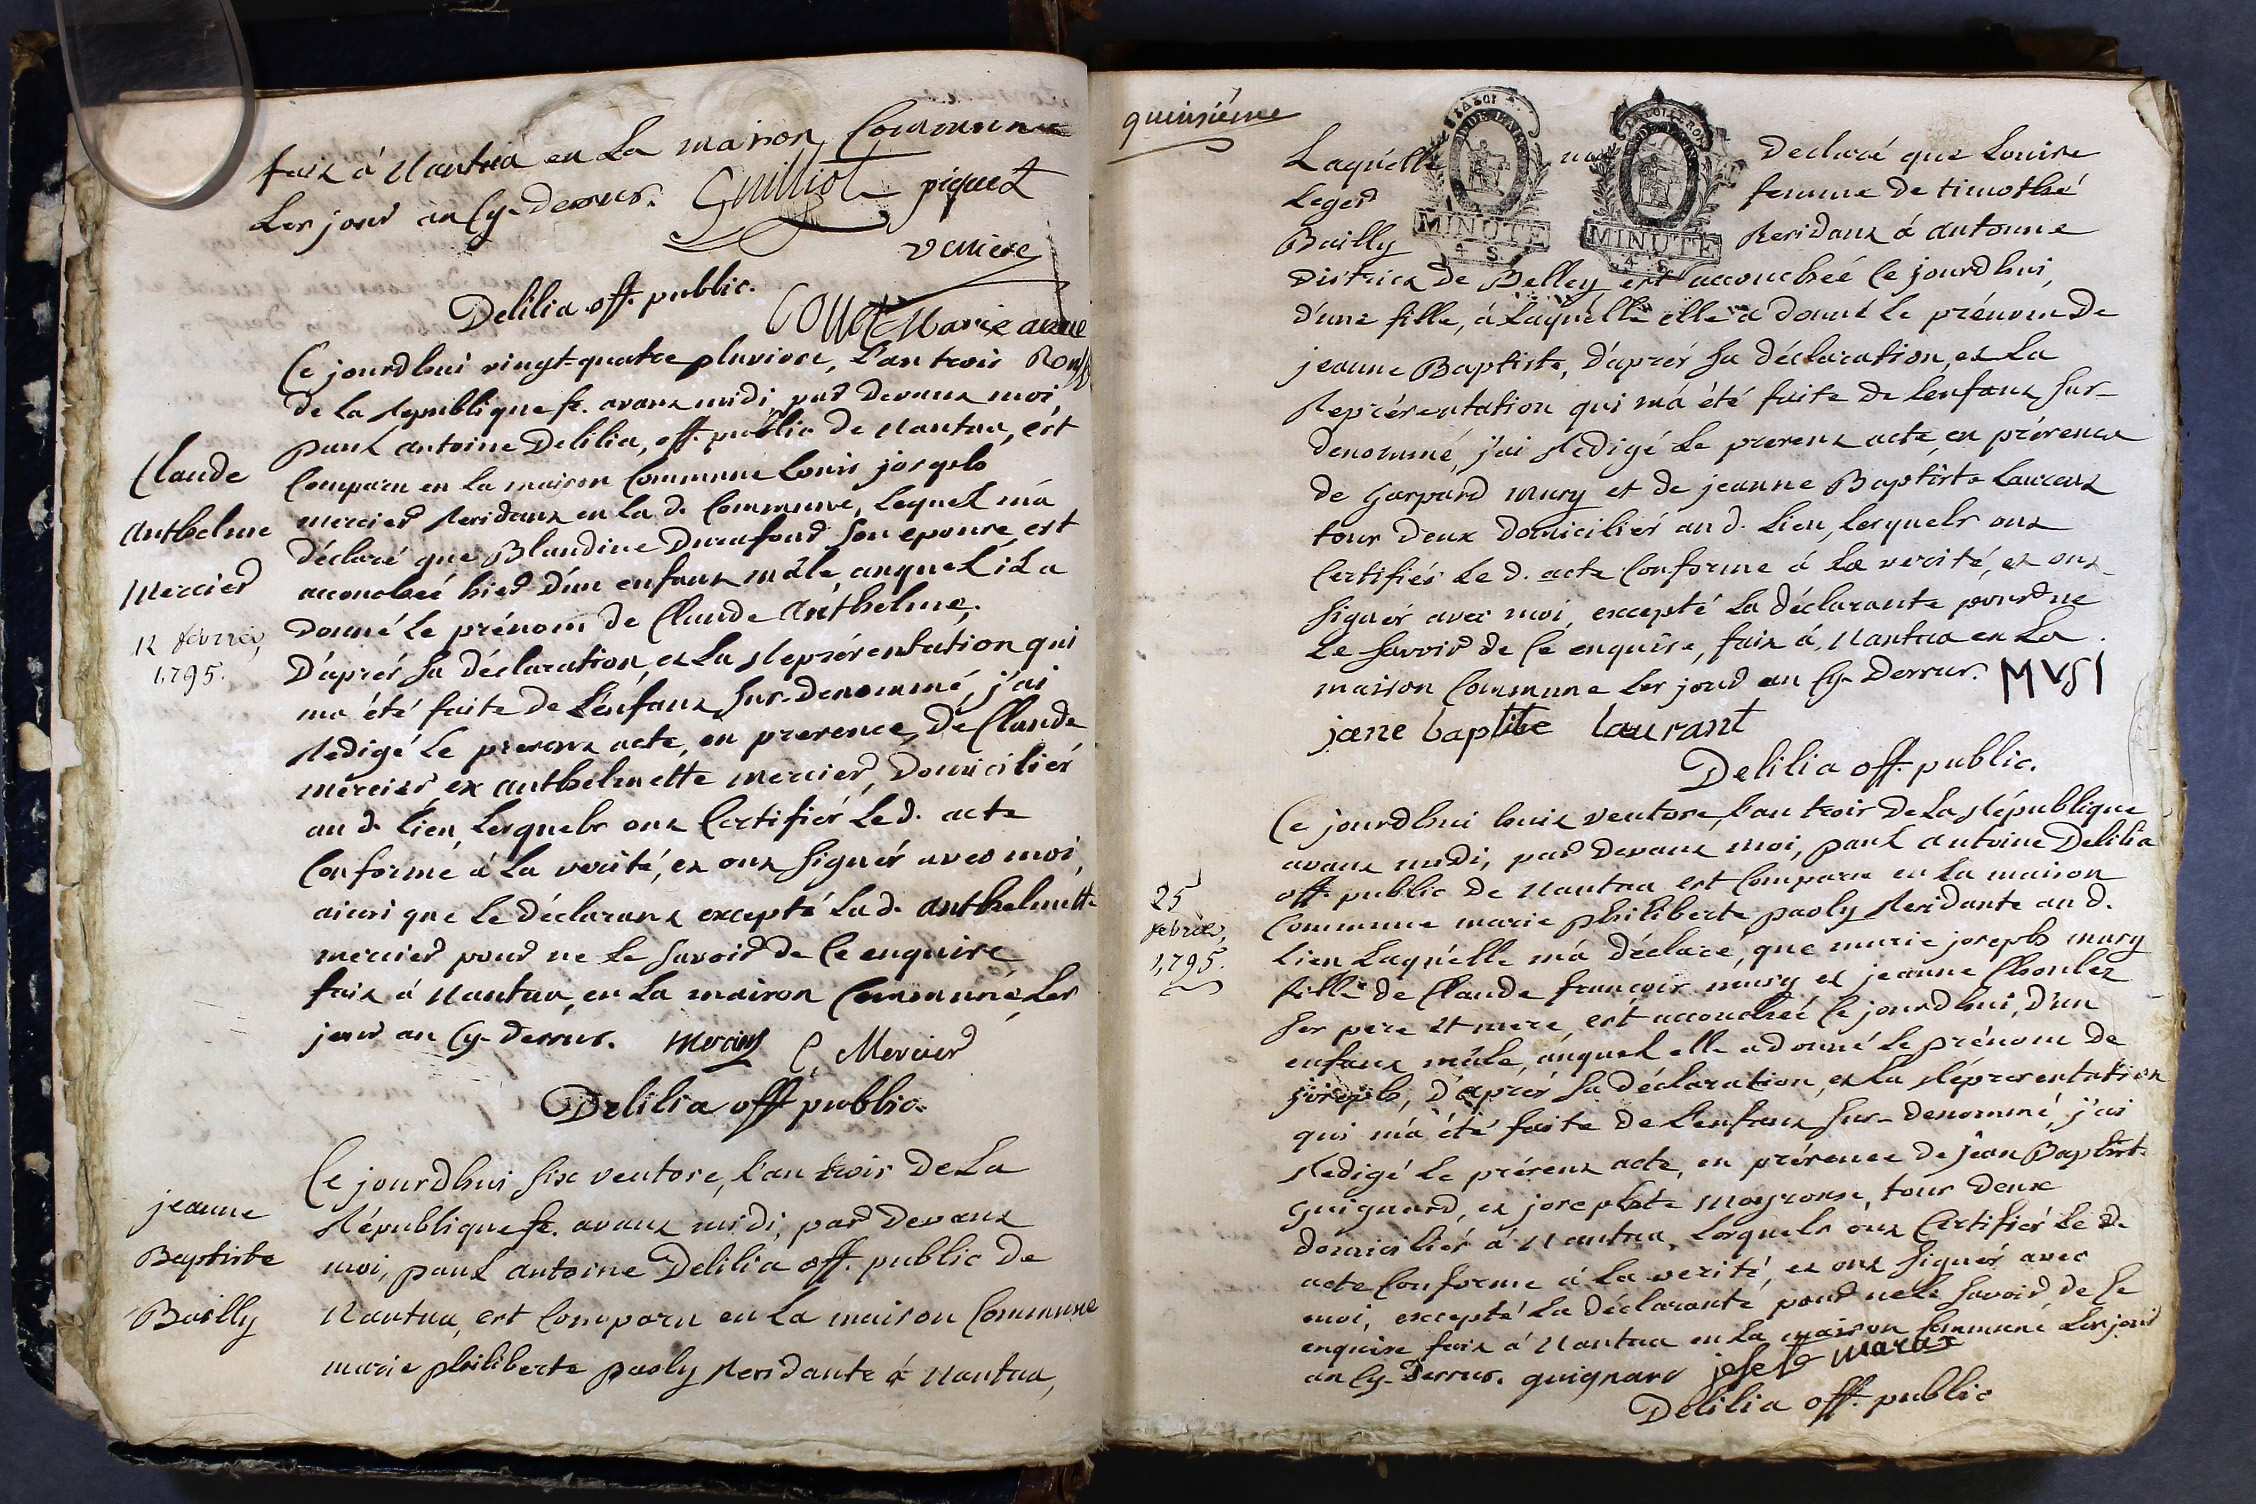 fait à Nantua en la maison Commune
les jour an Cy-dessus. Guilliot piquet
Delilia off. public. Couet Marie anne
Ce jourdhui vingt-quatre pluviose, l'an trois
de la Republique fe. avant midi par devant moi
paul antoine Delilia, off. public de Nantua, est
Claude
Comparu en la maison Commune Louis joseph
Anthelme
mercier Residant en la d. Commune, lequel m'a
déclaré que Blandine Durafour Son epouse, est
Mercier
accouchée hier d'un enfant mâle, auquel il a
12 fevrier,
1,795.
donné le prénom de Claude Anthelme.
D'après sa déclaration, et la Représentation qui
ma été faite de l'enfant sus-denommé, j'ai
Redigé le present acte, en presence, de Claude
mercier, et anthelmette mercier, domiciliés
au d. lieu, lesquels ont Certifiés le d. acte
Conforme à la verité, et ont Signés avec moi,
ainsi que le déclarant excepté la d. anthelmette
mercier pour ne le savoir de Ce enquise,
fait à Nantua, en la maison Commune, les
jour an Cy-dessus. C. Mercier
Delilia off public.
Ce jourdhui six ventose, l'an trois de la
jeanne
République fe. avant midi, par devant
Baptiste
moi, paul antoine Delilia off. public de
Bailly
Nantua, est Comparu en la maison Commune
marie philiberte paoly Residante à Nantua,
quinsiéme
Laquélle ma Declaré que Louise
Leger femme de timothé
Bailly Residant à antonne
MINUTE
4 S.
MINUTE
4 S.
District de Belley est accouchée Ce jourdhui,
d'une fille, à laquélle elle a donné le prénom de
jeanne Baptiste, d'après sa déclaration, et la
Représentation qui m'a été faite de lenfant sus-
denommé, j'ai Redigé le present acte, en présence
de Gaspard mury et de jeanne Baptiste Laurent
tous deux domiciliés au d. lieu, lesquels ont
Certifiés le d. acte Conforme à la verité, et ont
Signés avec moi, excepté la déclarante pour ne
le savoir de Ce enquise, fait à Nantua en la
maison Commune les jour an Cy-dessus. MVSI
jane baptite laurant
Delilia off. public.
Ce jourdhui huit ventose, l'an trois de la République
avant midi, par devant moi, paul antoine Delilia
25
fevrier,
1,795.
off. public de Nantua est Comparu en la maison
Commune marie philiberte paoly Residante au d.
lieu Laquélle m'a déclaré, que marie joseph mury
fille de Claude francois mury et jeanne
ses pere et mere, est accouchée Ce jourdhui, d'un
enfant mâle, auquel elle a donné le prénom de
joseph, d'après sa déclaration, et la Représentation
qui m'a été faite de l'enfant sus-denommé, j'ai
Redigé le présent acte, en présence de jean Baptiste
Guignard, et josephte tous deux
domiciliés à Nantua, lesquels ont Certifiés le d.
acte Conforme à la verité, et ont Signés avec
moi, excepté la déclarante pour ne le savoir de Ce
enquise fait à Nantua en la maison Commune les jour
an Cy-dessus. guignard
Delilia off. public